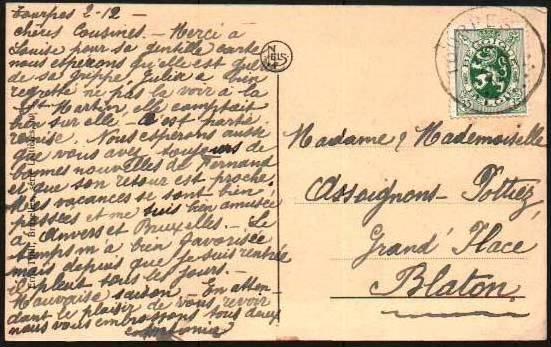 Tourpes 2-12 —
chères Cousines. — Merci à
Louise pour sa gentille carte
nous espérons qu'elle est guérie
de sa grippe. Julia a bien
regretté ne pas la voir à la
St Martin elle comptait
bien sur elle — c'est partie
remise. Nous espérons aussi
que vous avez toujours de
bonnes nouvelles de Fernand
et que son retour est proche.
Mes vacances se sont bien
passées et me suis bien amusée
à Anvers et Bruxelles. — Le
temps m'a bien favorisée
mais depuis que je suis rentrée
il pleut tous les jours. —
Mauvaise saison. — En atten-
dant le plaisir de vous revoir
nous vous embrassons tous deux
NELS
Madame & Mademoiselle
Assoignons-Pottiez
Grand' Place
Blaton.